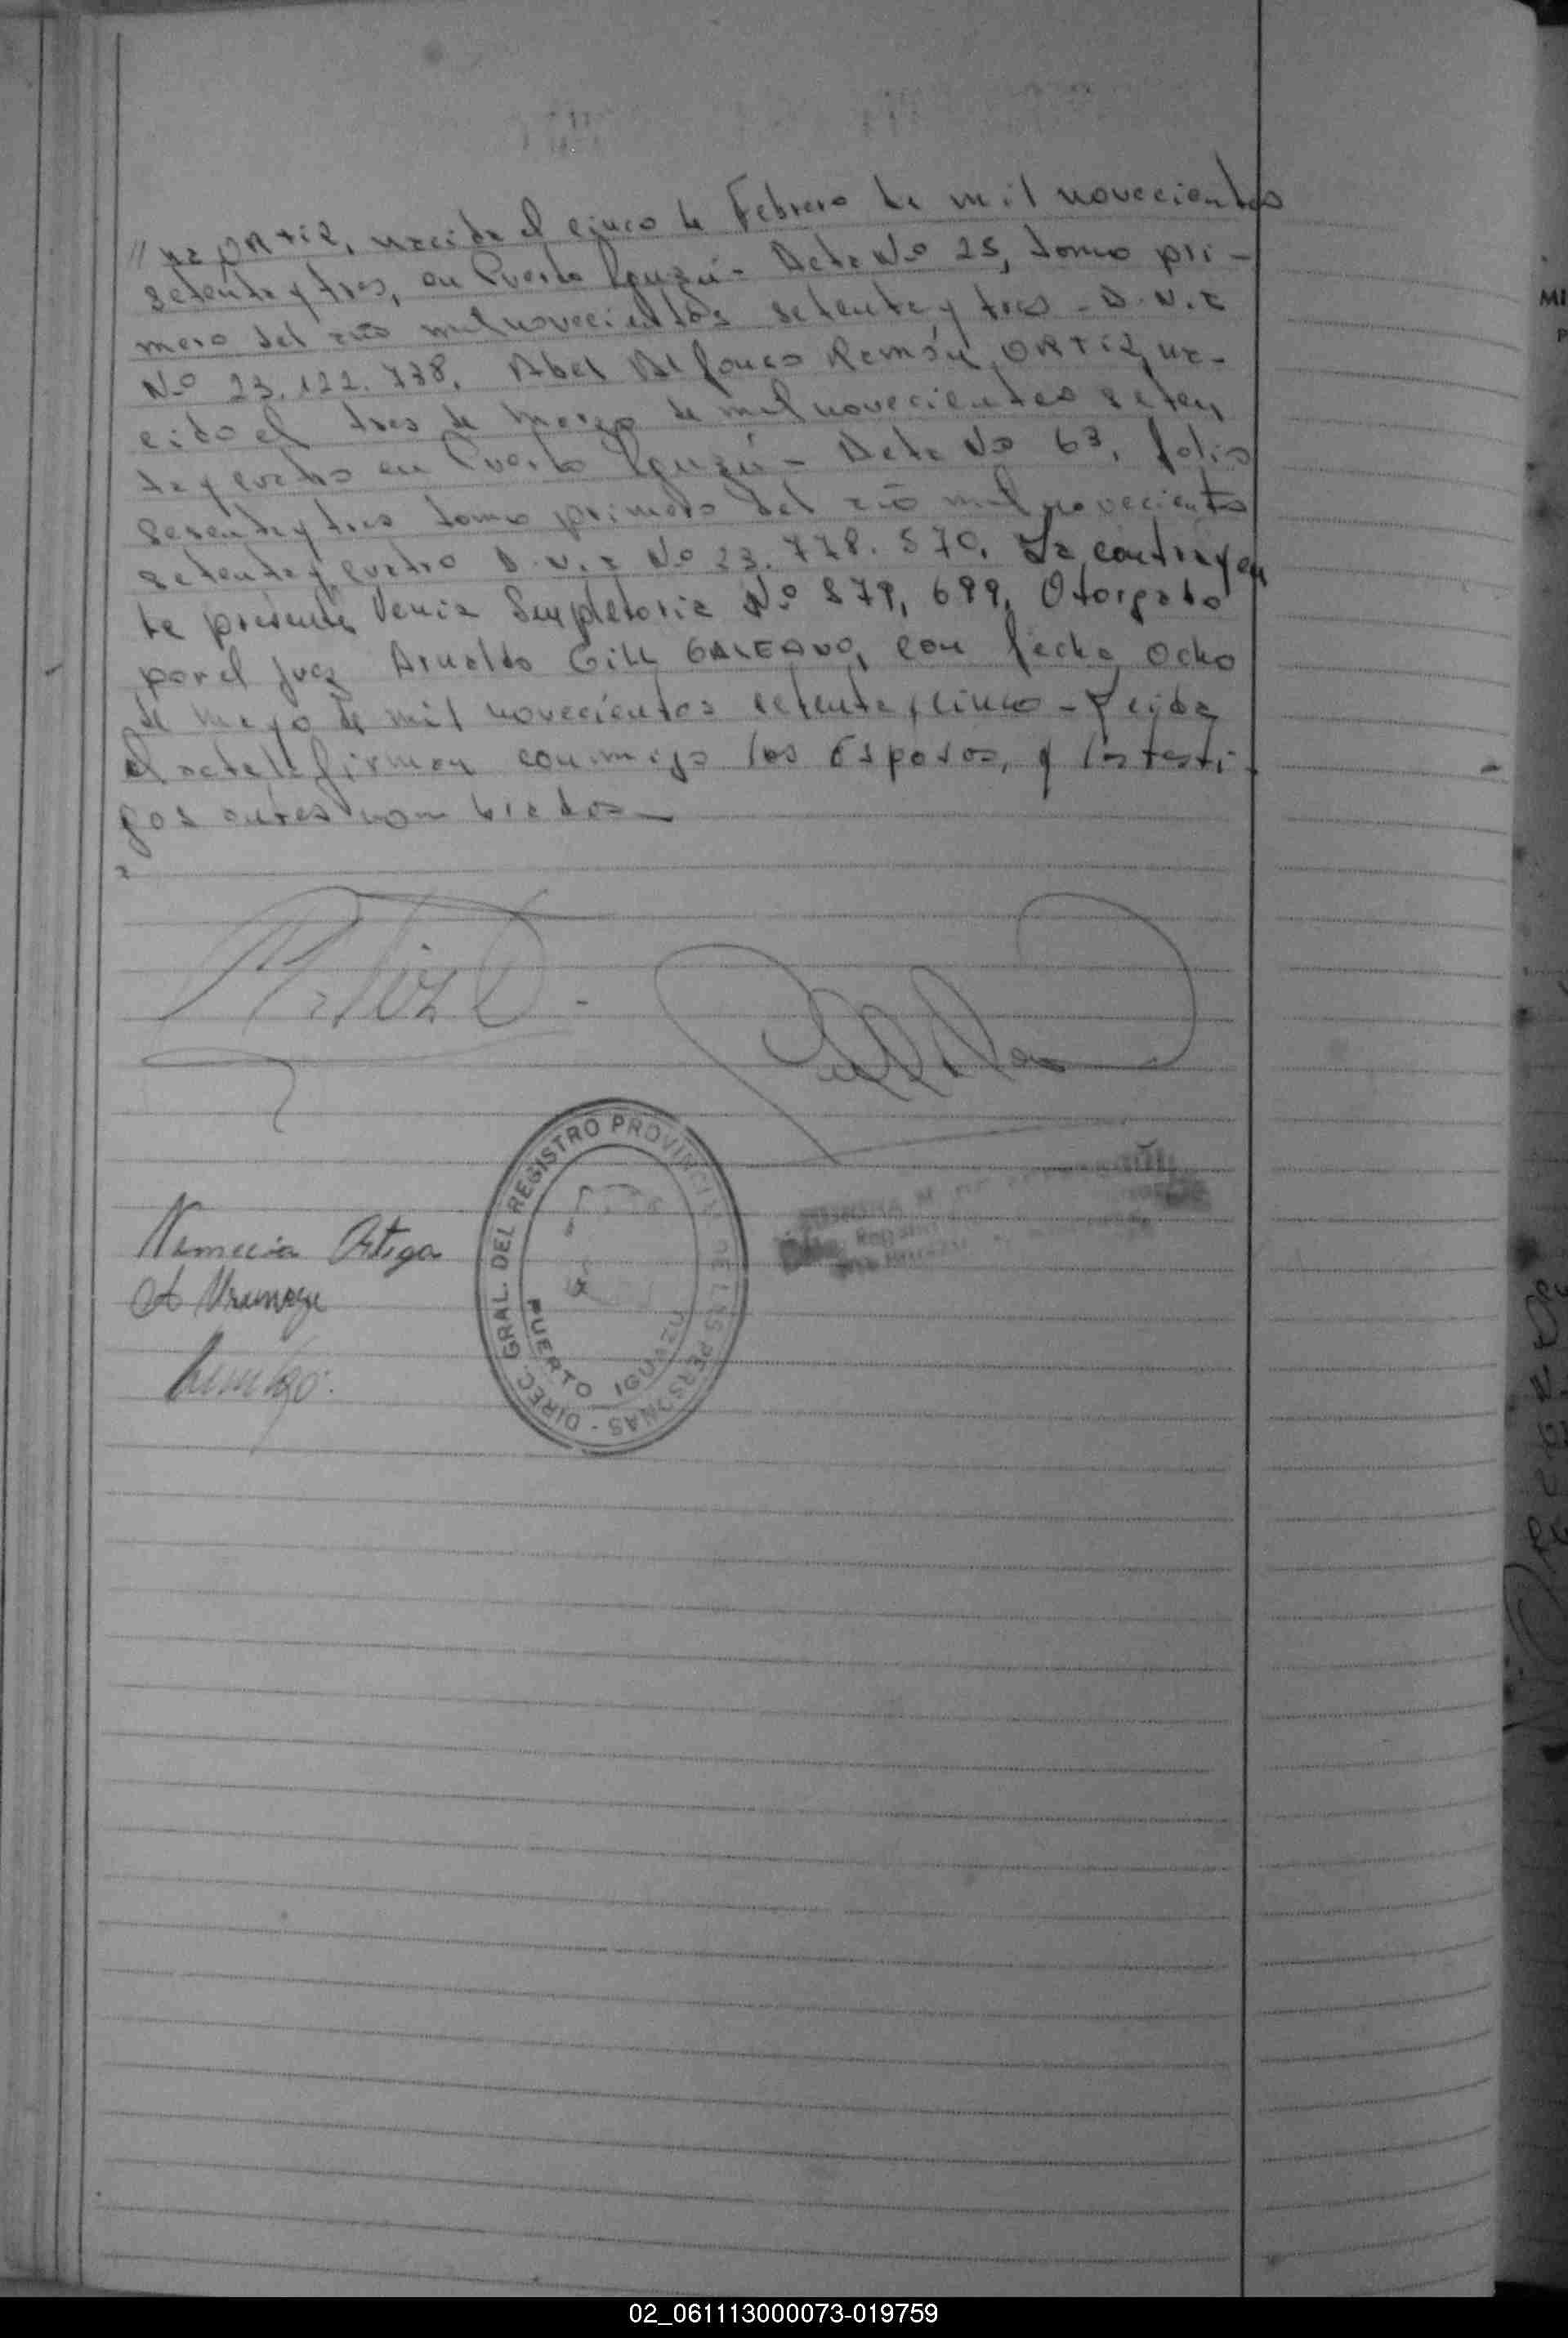 // na ORTIZ, nacida el cinco de Febrero de mil novecientos
setenta y tres, en Puerto Iguazú - Acta No 25, tomo pri-
mero del año mil novecientos setenta y tres - D.N.I
No 23.122.738. Abel Alfonso Ramón ORTIZ, na-
cido el tres de Marzo de mil novecientos seten
ta y cuatro en Puerto Iguazú - Acta No 63, folio
sesenta y tres tomo primero del año mil novecientos
setenta y cuatro D.N.I No 23.778.570. La contrayen
te presenta Venia Supletoria No 879,699, Otorgado
por el Juez Arnaldo Gill GALEANO, con fecha Ocho
de Mayo de mil novecientos setenta y cinco - Leída
el acta la firman conmigo los Esposos, y los testi-
gos antes nombrados
Nemecia Ortega
DIREC. GRAL. DEL REGISTRO PROVINCIAL DE LAS PERSONAS -
PUERTO IGUAZU
02_061113000073-019759